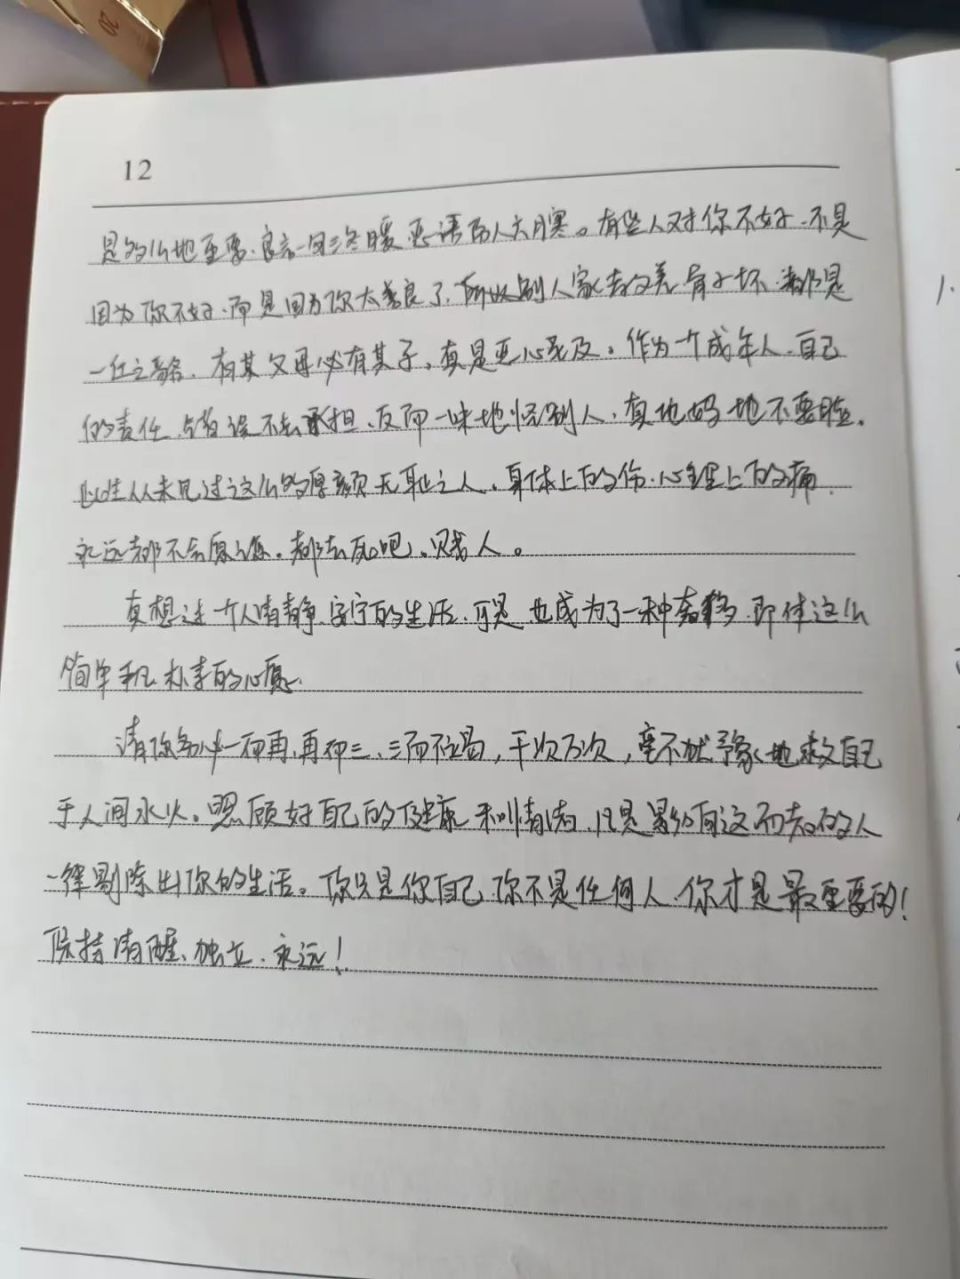 12
是多么地重要。良言一句三冬暖,恶语伤人六月寒。有些人对你不好,不是
因为你不好,而是因为你太善良了,所以别人家教差、骨子坏,都是
一丘之貉。有其父母必有其子,真是恶心至及。作为一个成年人,自己
的责任、错误不去承担,反而一味地怪别人,真他妈地不要脸。
此生从未见过这么的厚颜无耻之人。身体上的伤,心理上的痛,
永远都不会原谅。都去死吧,贱人。
真想过一个人清静、安宁的生活,可是也成为了一种奢侈,即使这么
简单和朴素的心愿。
请你务必一而再,再而三,三而不竭,千次万次,毫不犹予地救自己
于人间水火。照顾好自己的健康和情绪,凡是影响这两者的人
一律剔除出你的生活。你只是你自己,你不是任何人,你才是最重要的!
保持清醒、独立、永远!
1.